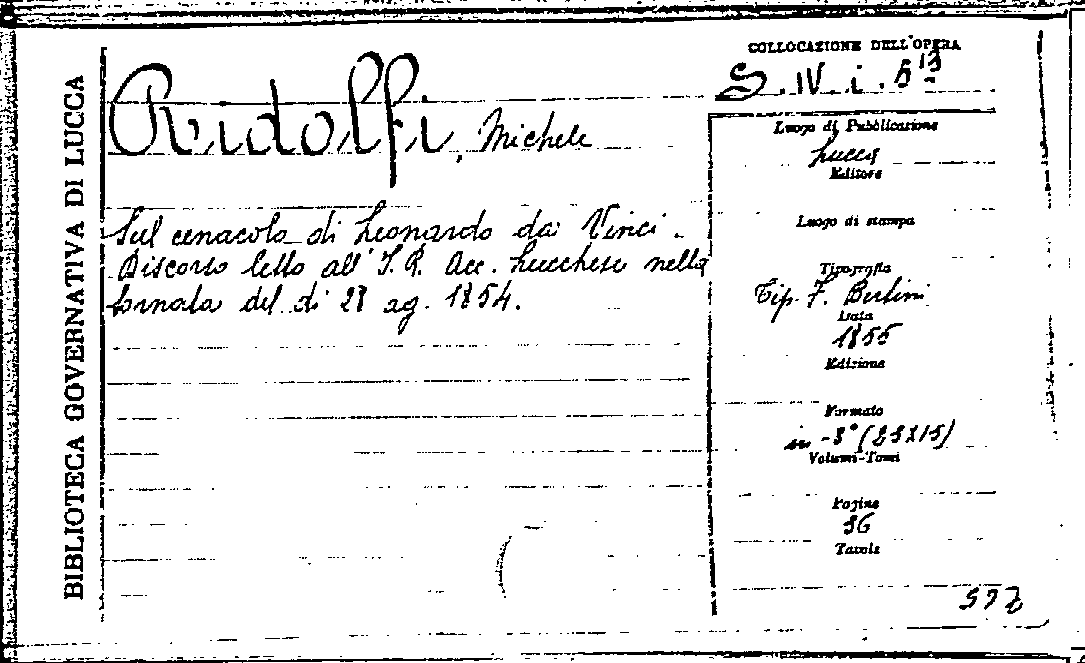 BIBLIOTECA GOVERNATIVA DI LUCCA
Ridolfi, Michele
Sul cenacolo di Leonardo da Vinci.
Discorso letto all' I. R. Acc. Lucchese nella
tornata del di 28 ag. 1854.
COLLOCAZIONE DELL'OPERA
Luogo di Pubblicazione
Lucca
Editore
Luogo di stampa
Tipografia
Tip. F. Bertini
Data
1855
Edizione
Formato
in-8° (23X15)
Volumi-Tomi
Pagine
Tavole